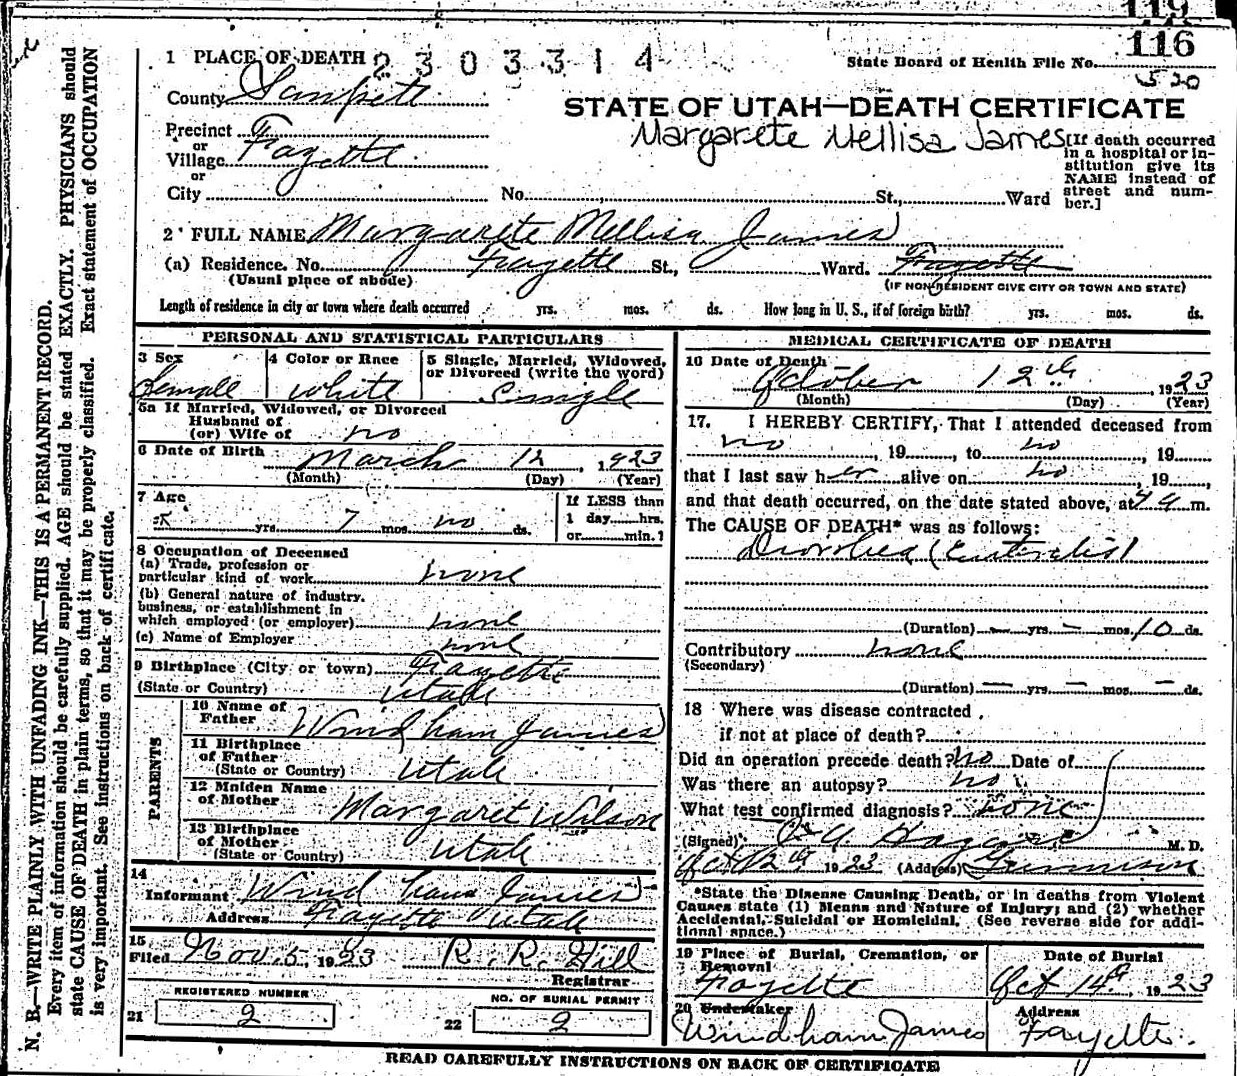 119
116
1 PLACE OF DEATH 2303314
State Board of Health File No.
520
County Sanpete
STATE OF UTAH—DEATH CERTIFICATE
Margarete Mellisa James
Precinct
or
Village Fayette
or
City No. St., Ward
[If death occurred
in a hospital or in-
stitution give its
NAME instead of
street and num-
ber.]
2 FULL NAME Margarete Mellisa James
(a) Residence. No. Fayette St., Ward. Fayette
(Usual place of abode) (IF NON-RESIDENT GIVE CITY OR TOWN AND STATE)
Length of residence in city or town where death occurred yrs. mos. ds. How long in U. S., if of foreign birth? yrs. mos. ds.
PERSONAL AND STATISTICAL PARTICULARS
3 Sex
Female
4 Color or Race
White
5 Single, Married, Widowed,
or Divorced (write the word)
Single
5a If Married, Widowed, or Divorced
Husband of
(or) Wife of no
6 Date of Birth
March 12, 1923
(Month) (Day) (Year)
7 Age
yrs. 7 mos. no ds.
If LESS than
1 day hrs.
or min.?
8 Occupation of Deceased
(a) Trade, profession or
particular kind of work none
(b) General nature of industry,
business, or establishment in
which employed (or employer) none
(c) Name of Employer none
9 Birthplace (City or town) Fayette
(State or Country) Utah
PARENTS
10 Name of
Father Windham James
11 Birthplace
of Father
(State or Country) Utah
12 Maiden Name
of Mother Margaret Wilson
13 Birthplace
of Mother
(State or Country) Utah
14
Informant Windham James
Address Fayette Utah
15
Filed Nov. 5, 1923 R. R. Hill
Registrar
REGISTERED NUMBER
21 2
NO. OF BURIAL PERMIT
22 2
MEDICAL CERTIFICATE OF DEATH
16 Date of Death
October 12th 1923
(Month) (Day) (Year)
17. I HEREBY CERTIFY, That I attended deceased from
no, 19, to no, 19
that I last saw her alive on no, 19,
and that death occurred, on the date stated above, at m.
The CAUSE OF DEATH* was as follows:
Diorrhea (Enteralis)
(Duration) — yrs. — mos. 10 ds.
Contributory none
(Secondary)
(Duration) — yrs. — mos. — ds.
18 Where was disease contracted
if not at place of death?
Did an operation precede death? no Date of
Was there an autopsy? no
What test confirmed diagnosis? none
(Signed) M. D.
Oct 12th 1923 (Address) Gunnison
*State the Disease Causing Death, or in deaths from Violent
Causes state (1) Means and Nature of Injury; and (2) whether
Accidental, Suicidal or Homicidal. (See reverse side for addi-
tional space.)
19 Place of Burial, Cremation, or
Removal
Fayette
Date of Burial
Oct 14th, 1923
20 Undertaker
Windham James
Address
Fayette
READ CAREFULLY INSTRUCTIONS ON BACK OF CERTIFICATE
N. B.—WRITE PLAINLY WITH UNFADING INK—THIS IS A PERMANENT RECORD.
Every item of information should be carefully supplied. AGE should be stated EXACTLY. PHYSICIANS should
state CAUSE OF DEATH in plain terms, so that it may be properly classified. Exact statement of OCCUPATION
is very important. See instructions on back of certificate.